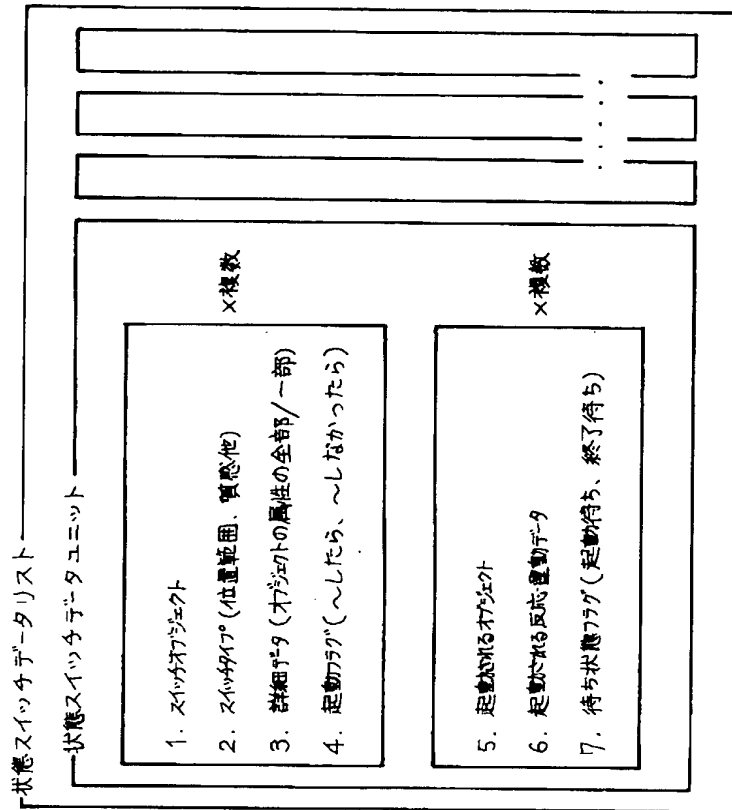 状態スイッチデータリスト
状態スイッチデータユニット
1. スイッチオブジェクト
2. スイッチタイプ(位置範囲、質感他)
3. 詳細データ(オブジェクトの属性の全部/一部)
4. 起動フラグ(〜したら、〜しなかったら)
×複数
5. 起動されるオブジェクト
6. 起動される反応・運動データ
7. 待ち状態フラグ(起動待ち、終了待ち)
×複数